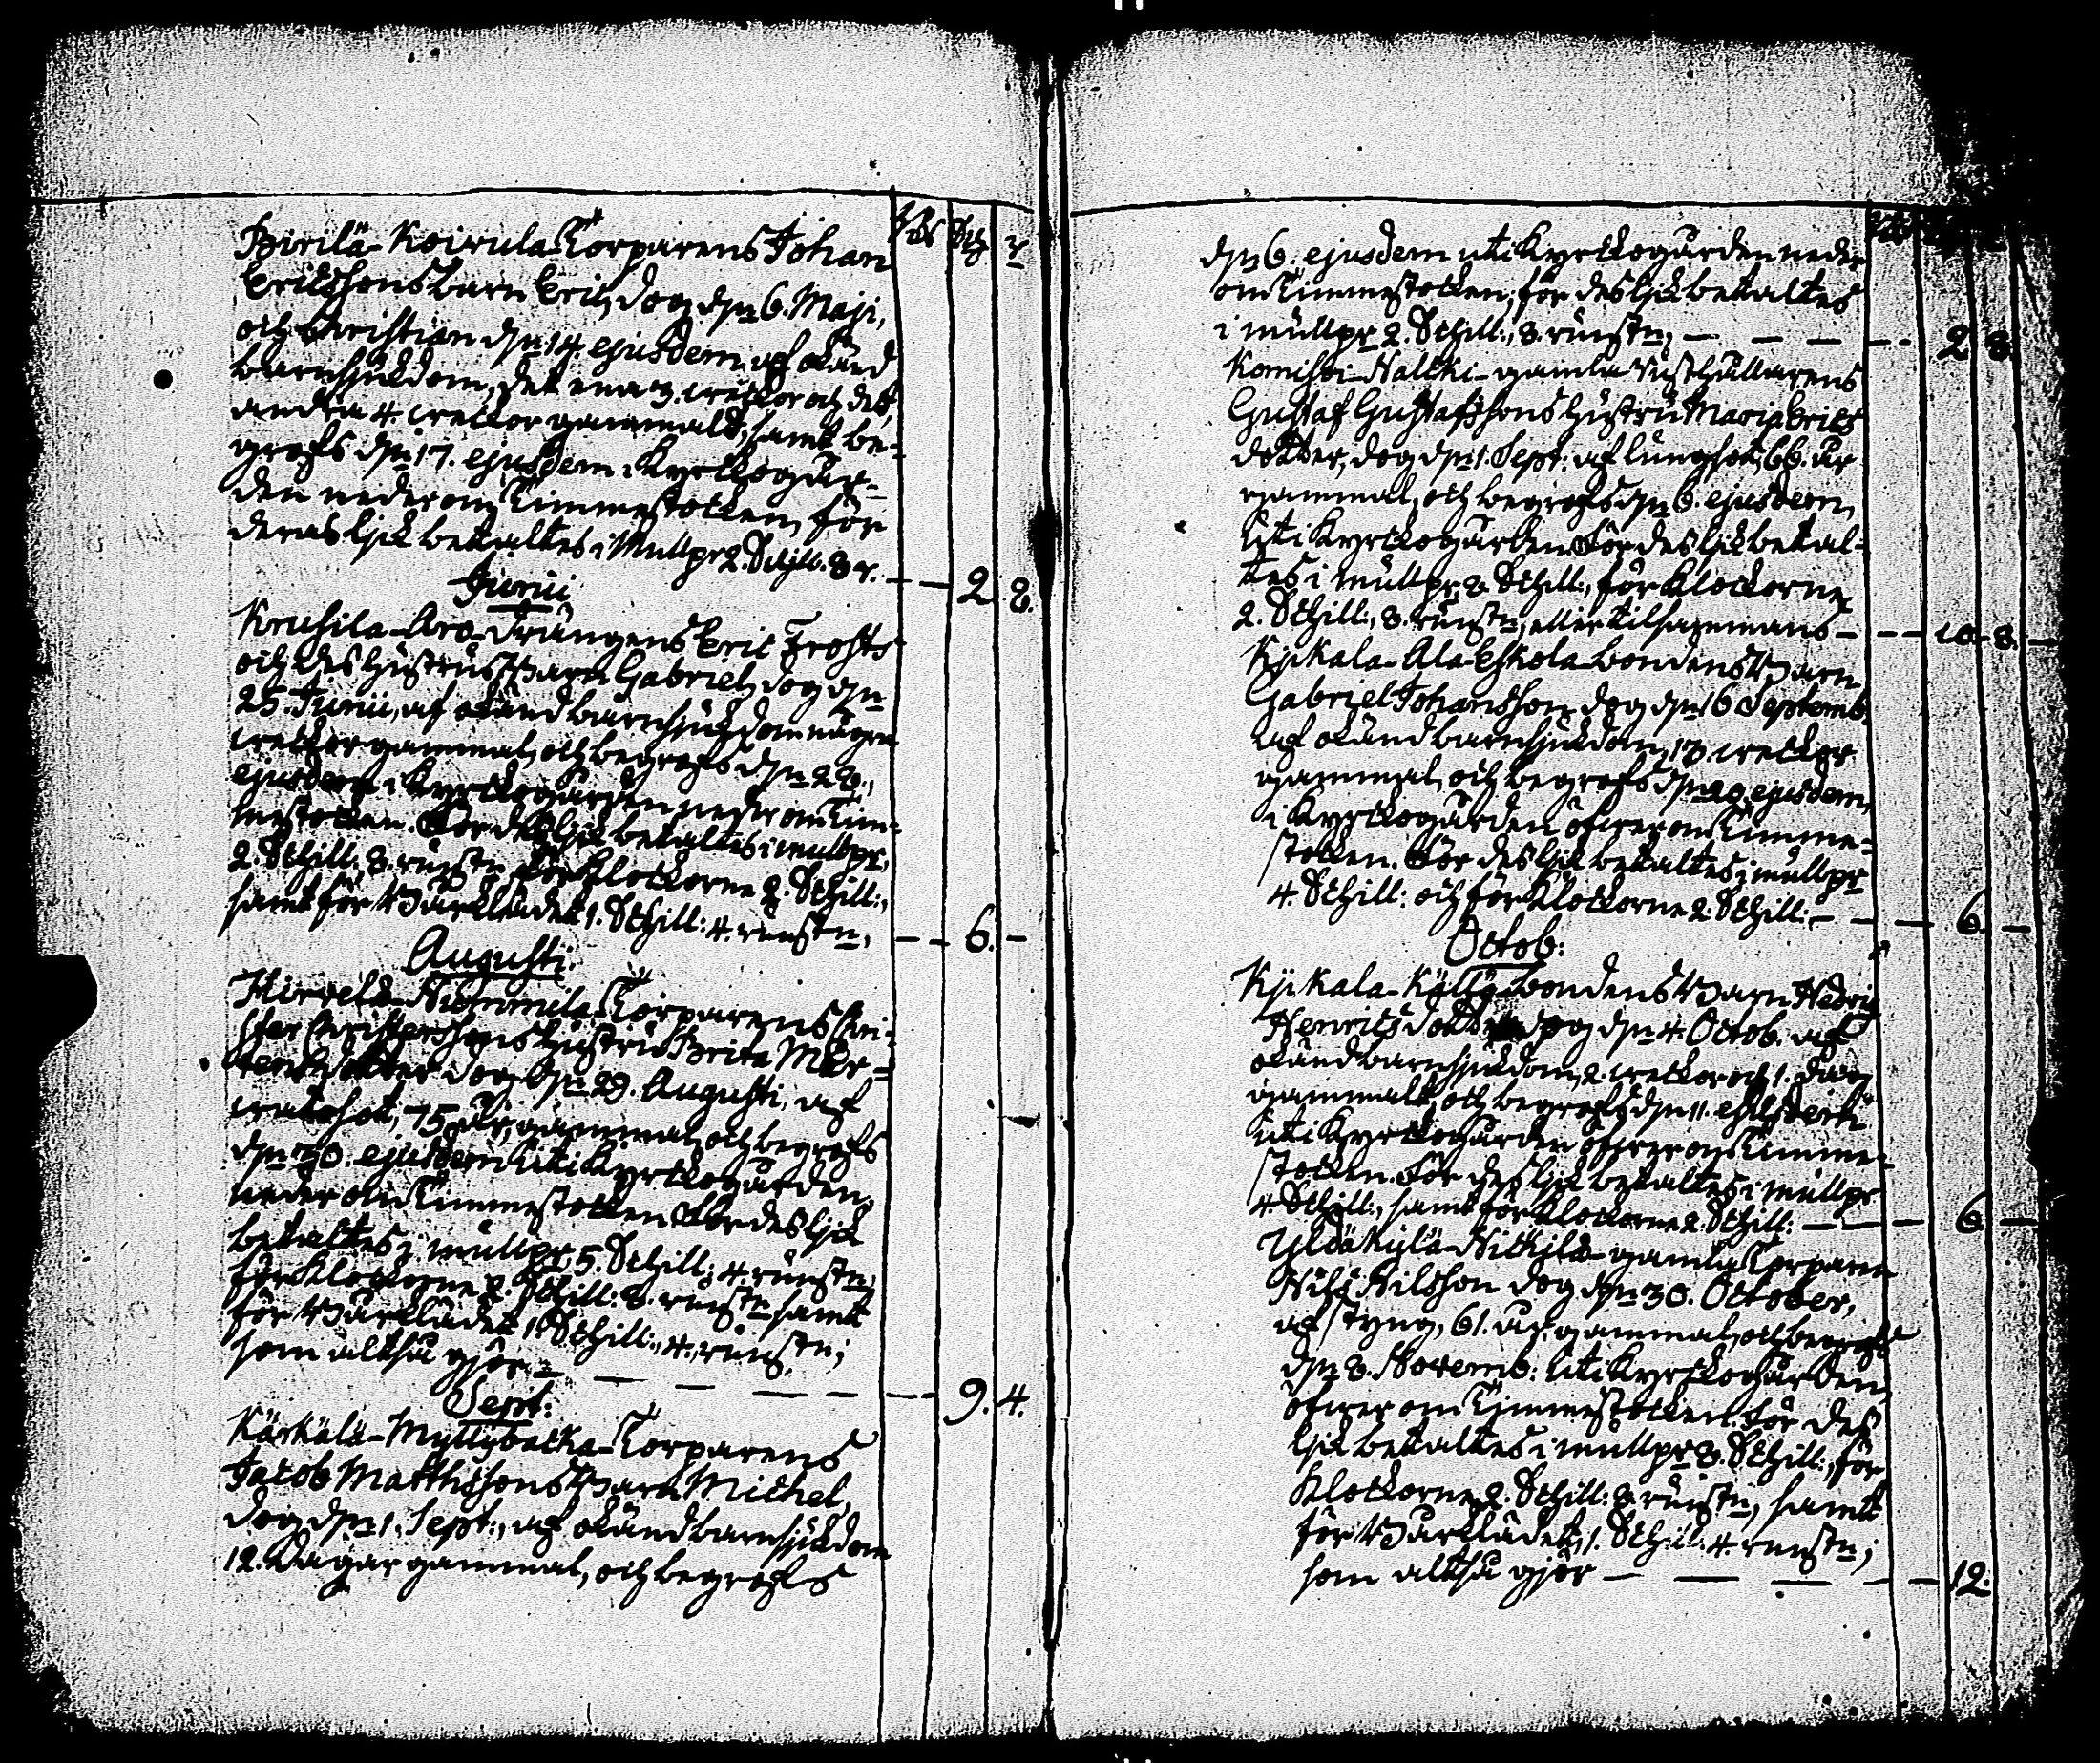 Rds Sch r
Pirilä-Koivula-Torparens Johan
Ericssons barn Eric, dog dn 6. Maji,
och Christian dn 14. ejusdem, af okänd
barnsjukdom, det ena 3. weckor och det
andra 4. weckor gammalt, samt be-
grofs dn 17. ejusdem i Kyrckogår-
den neder om Timmestocken, för
deras lijk betaltes i Mullpr 2. Schill. 8 r. – – 2 8.
Junii
Krusila-Aro-Drängens Eric Frosts
och des hustrus barn Gabriel, dog dn
25. Junii, af okänd barnsjukdom några
weckor gammal, och begrofs dn 28.,
ejusdem i Kyrckogården neder om Tim-
mestocken. För des lijk betaltes i mullpr,
2. Schill: 8. runstn för Klockorne 2. Schill:,
samt för Bårklädet 1. Schill: 4. runstn, – – 6. –
Augusti.
Hirvelä-Torparens Chri-
ster Christerssons hustru Brita Mår-
tens dotter dog dn 29. Augusti, af
watusot, 75 år, gammal, och begrofs
dn 30. ejusdem uti Kyrckogården,
neder om Timmestocken. För des lijk
betaltes i mullpr 5. Schill: 4. runstn,
för Klockorne 2. Schill: 8. runstn samt
för Bårklädet 1. Schill:, 4. runstn;
som altså gjör – – – – – – 9. 4.
Sept:
Kärkälä-Myllybacka-Torparens
Jacob Matthssons Barn Michel,
dog dn 1. Sept:, af okänd barnsjukdom
12. Dagar gammal, och begrofs
dn 6. ejusdem uti Kyrckogården neder
om Timmestocken, för des lijk betaltes
i mullpr 2. Schill:, 8. runstn, – – – – – 2 8
gamla
Gustaf Gustafssons hustru Maria Erics
dotter, dog dn 1. Sept: af lungsot, 66. år
gammal, och begrofs dn 6. ejusdem,
uti Kyrckogården. För des lijk betal-
tes i mullpr 8. Schill:, för Klockorne
2. Schill:, 8. runstn, eller tilsammans – – – 10. 8. –
Kjikala-Ala-Eskola-bondens Barn
Gabriel Johansson dog dn 16 Septemb.
af okänd barnsjukdom, 13. weckor
gammal, och begrofs dn 20 ejusdem,
i Kyrckogården öfwer om Timme-
stocken. För des lijk betaltes i mullpr
4. Schill: och för Klockorne 2. Schill: – – – 6. –
Octob:
Kjikala-Kylly-bondens Barn Hedvig
Henrics dotter dog dn 4. Octob. af
okänd barnsjukdom, 2. weckor och 1. dag
gammalt, och begrofs dn 11. ejusdem
uti Kyrckogården öfwer om Timme-
stocken. För des lijk betaltes i mullpr
4. Schill:, samt för Klockorne 2. Schill: – – – 6 –
Ylökylä-Nickilä-gamla Torparen
Nils Nilsson dog dn 30. October,
af styng, 61. år gammal, och begrofs
dn 8. Novemb: uti Kyrckogården,
öfwer om Timmestocken. För des
lijk betaltes i mullpr 8. Schill:, för
Klockorne 2. Schill: 8. runstn, samt
för Bårklädet, 1. Schill. 4. runstn;
som altså gjör – – – – – 12.